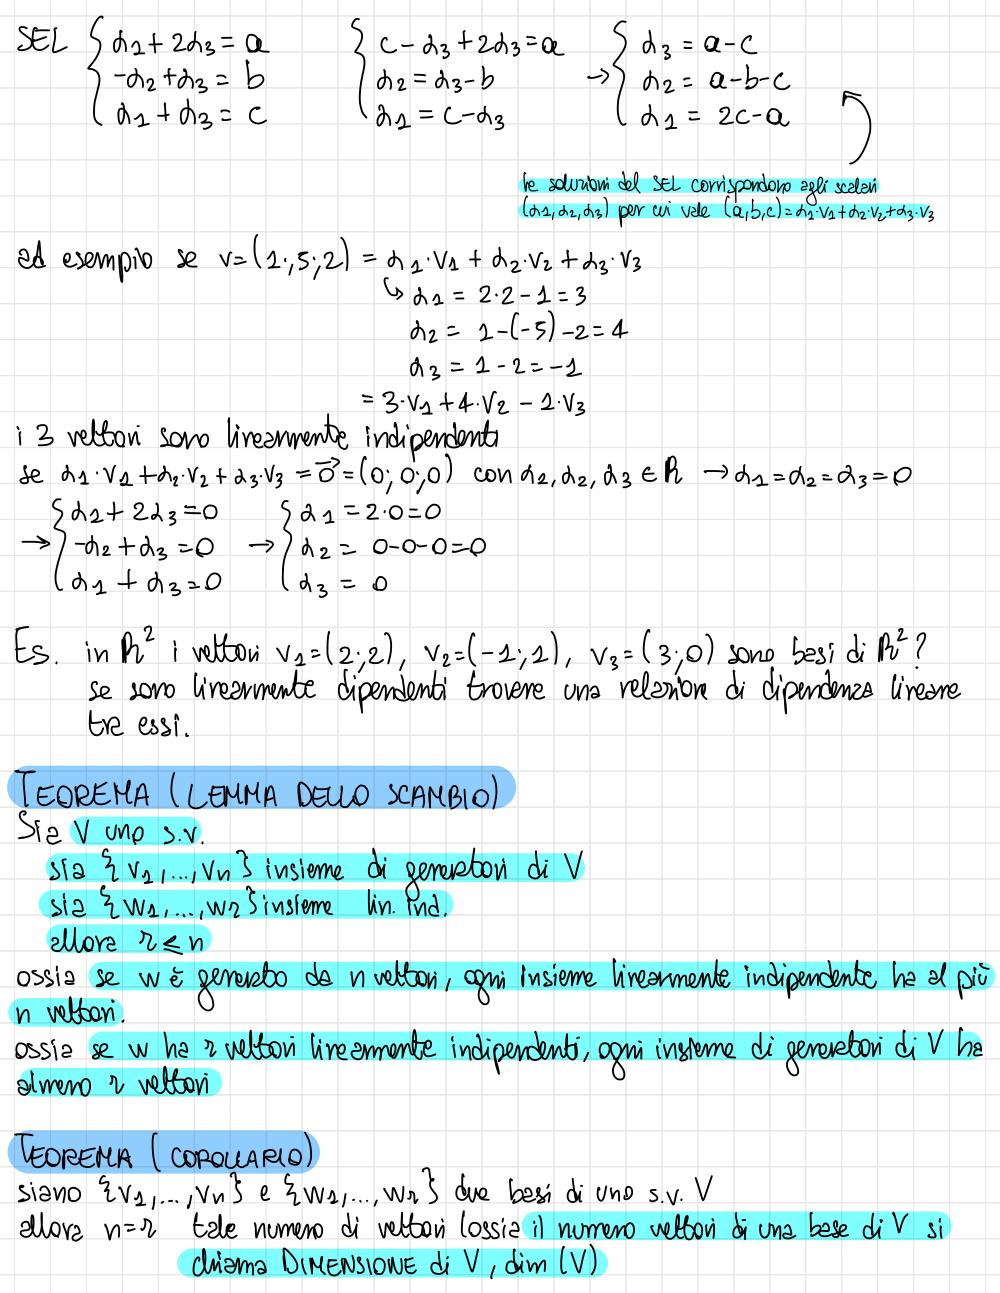 SEL { α1 + 2α3 = a { c - α3 + 2α3 = a { α3 = a-c
-α2 + α3 = b α2 = α3 - b → α2 = a-b-c
α1 + α3 = c α1 = c-α3 α1 = 2c-a
le soluzioni del SEL corrispondono agli scalari
(α1, α2, α3) per cui vale (a,b,c)=α1·v1+α2·v2+α3·v3
ad esempio se v=(1;,5;2) = α1·v1 + α2·v2 + α3·v3
↳ α1 = 2·2-1=3
α2 = 1-(-5)-2=4
α3 = 1-2=-1
= 3·v1+4·v2-1·v3
i 3 vettori sono linearmente indipendenti
se α1·v1+α2·v2+α3·v3=0⃗=(0;0;0) con α1,α2,α3 ∈ R → α1=α2=α3=0
{ α1+2α3=0 { α1=2·0=0
→ -α2+α3=0 → α2= 0-0-0=0
α1+α3=0 α3= 0
Es. in R² i vettori v1=(2;2), v2=(-1;1), v3=(3;0) sono basi di R²?
se sono linearmente dipendenti trovare una relazione di dipendenza lineare
tra essi.
TEOREMA (LEMMA DELLO SCAMBIO)
Sia V uno s.v.
sia {v1,...,vn} insieme di generatori di V
sia {w1,...,wr} insieme lin. ind.
allora r≤n
ossia se w è generato da n vettori, ogni insieme linearmente indipendente ha al più
n vettori.
ossia se w ha r vettori linearmente indipendenti, ogni insieme di generatori di V ha
almeno r vettori
TEOREMA (COROLLARIO)
siano {v1,...,vn} e {w1,...,wr} due basi di uno s.v. V
allora n=r tale numero di vettori (ossia il numero vettori di una base di V si
chiama DIMENSIONE di V, dim(V)